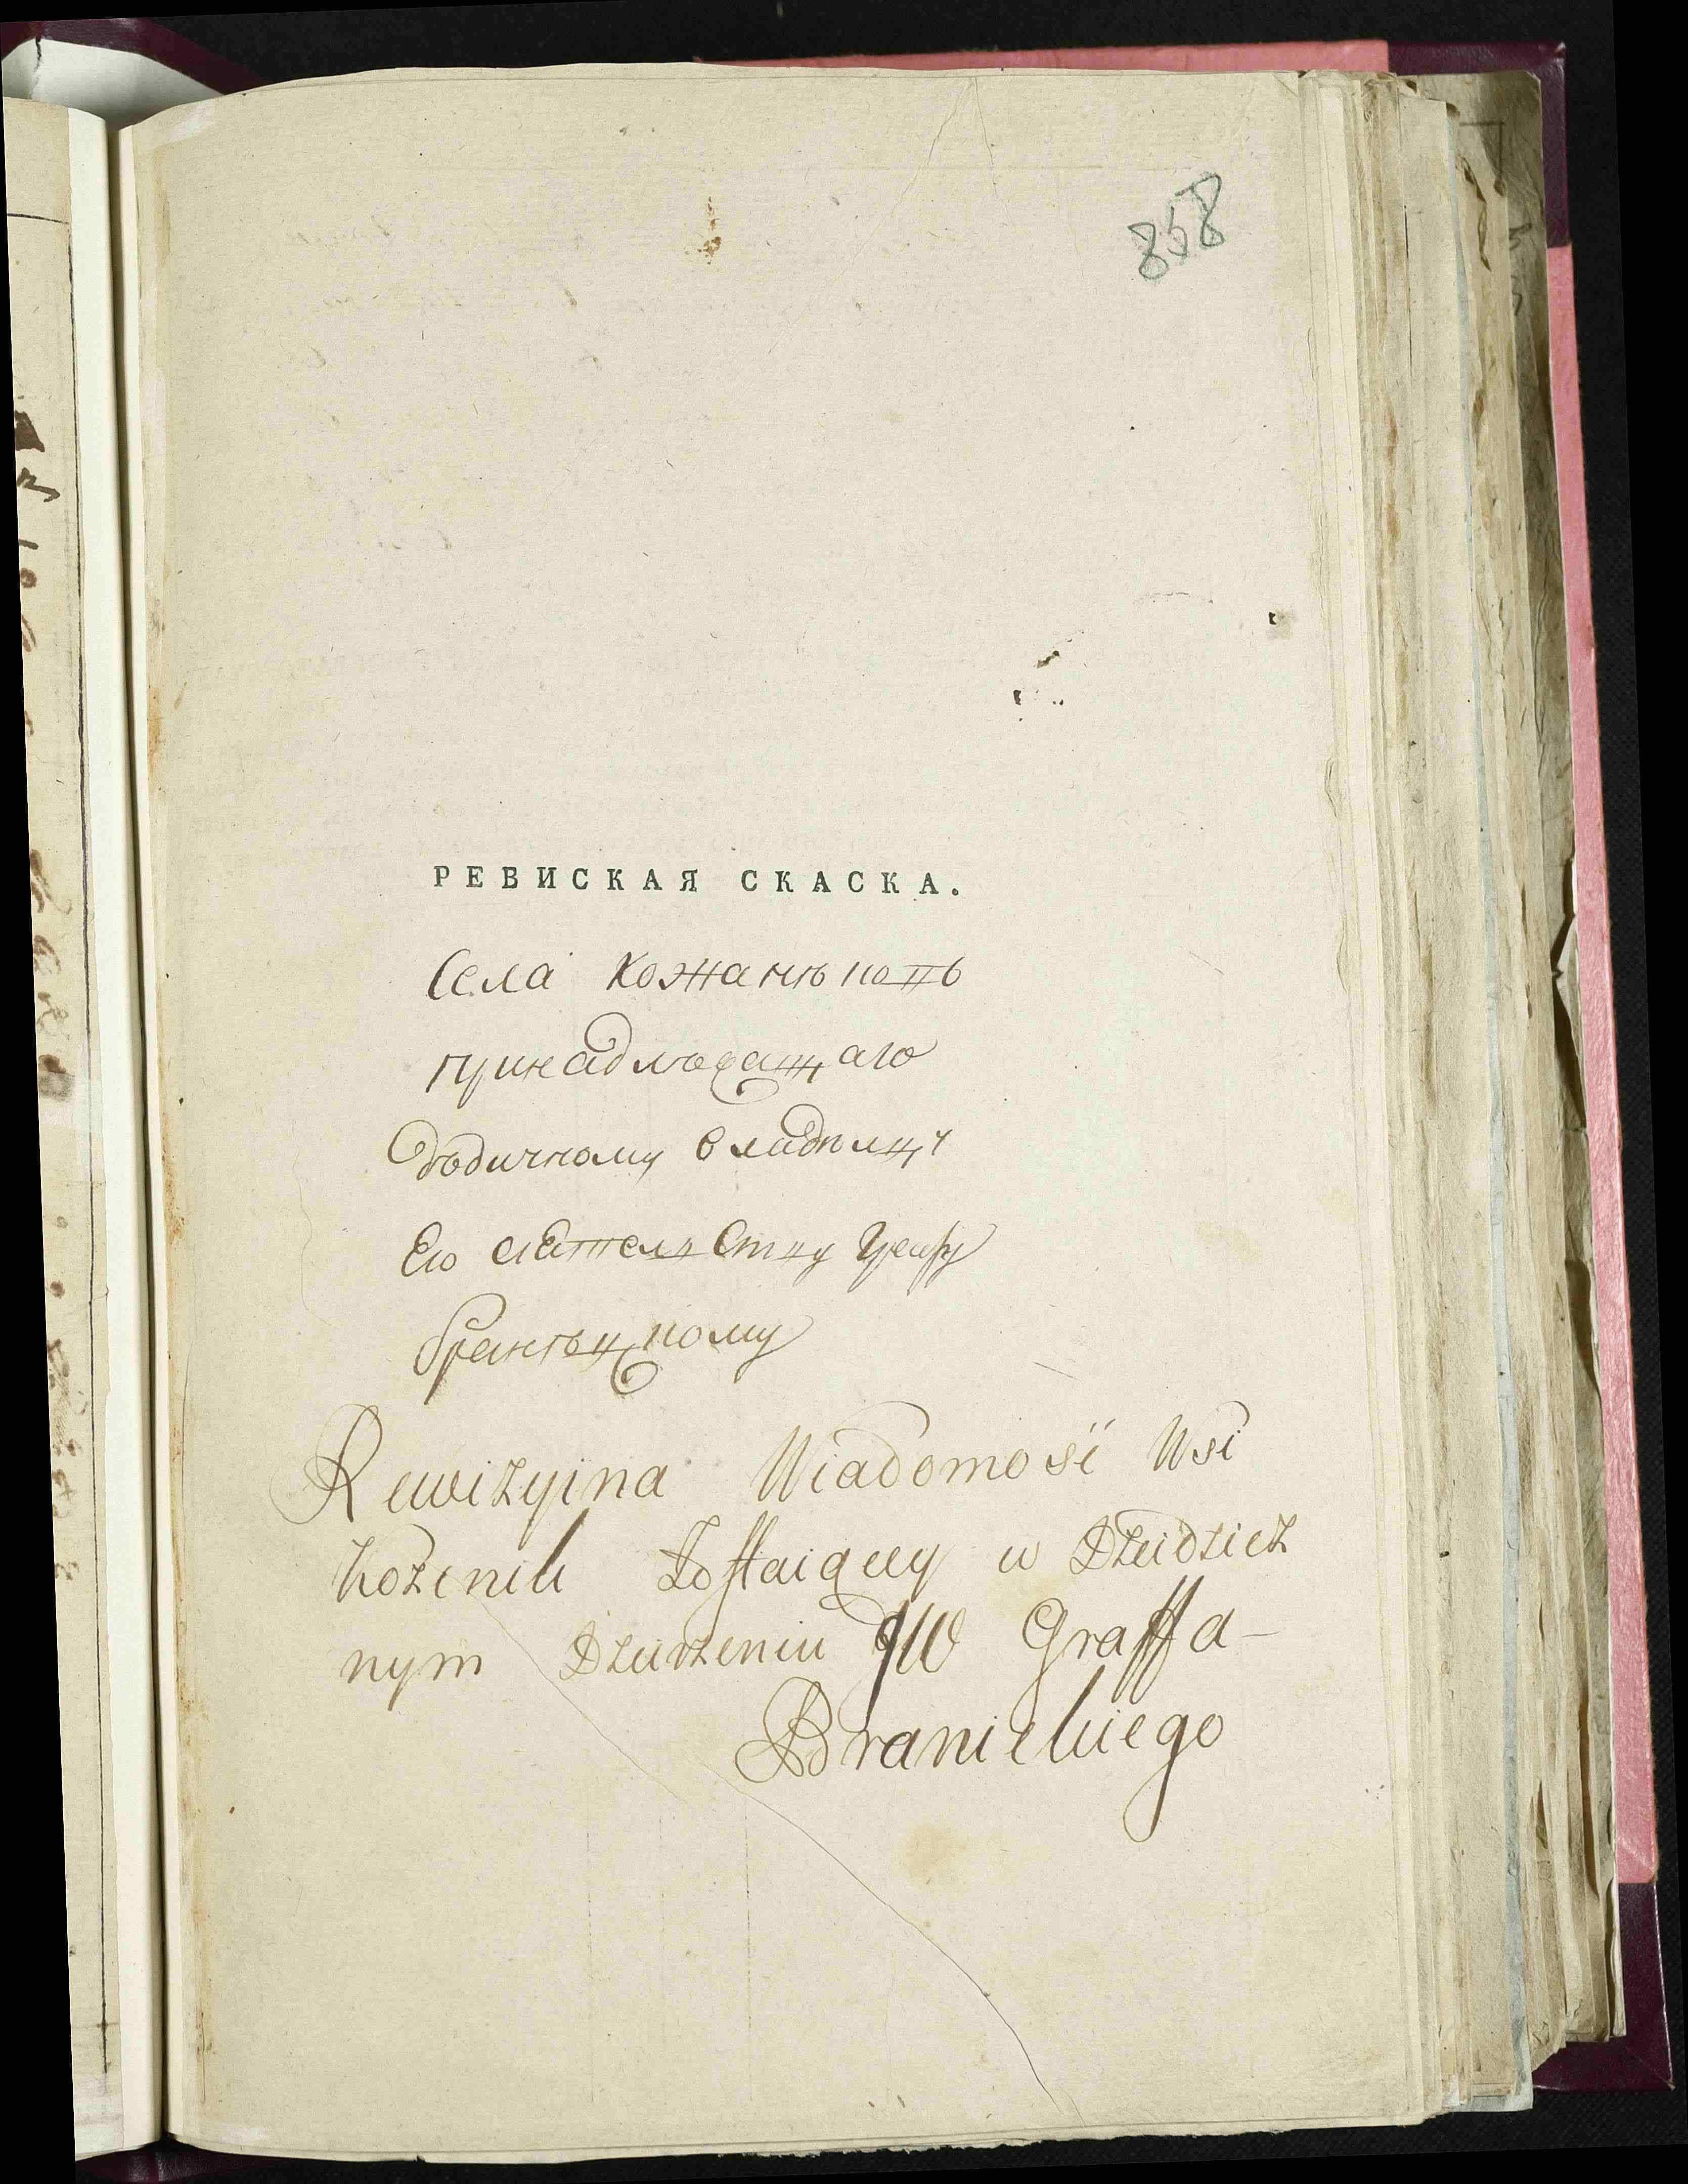 858
РЕВИСКАЯ СКАСКА.
Села Кожанъ
принадлѣжащаго
дѣдичному владѣлцу
Его сіятелству Графу
браницкому
Rewizyina Wiadomość Wsi
w Dziedzicz
nym Dzierżeniu JW Graffa-
Branickiego